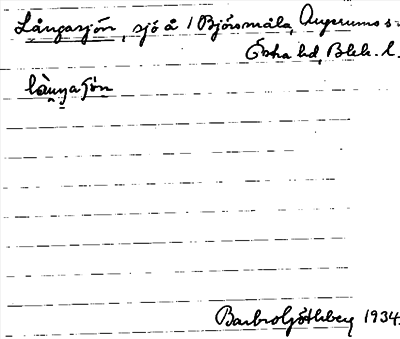 Långasjön, sjö å 1 Björsmåla, Augerums s.
Östra hd, Blek. l.
Barbro Göthberg 1934.